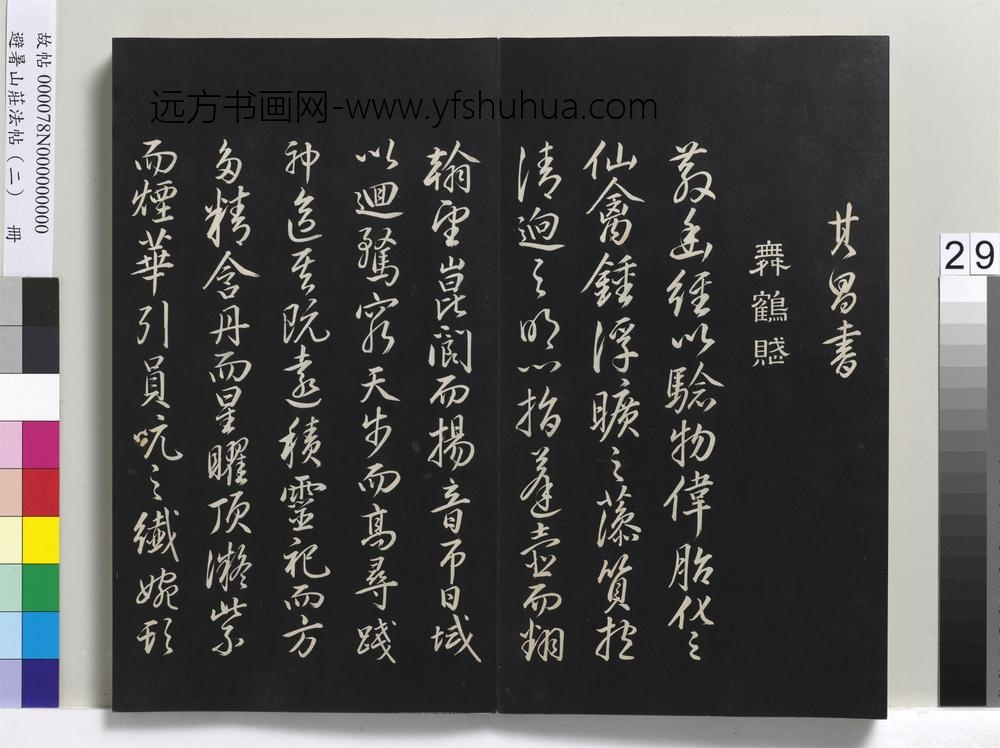 其昌書
舞鶴賦
散幽經以驗物偉胎化之
仙禽鍾浮曠之藻質抱
清迥之明心指蓬壺而翻
翰望崑閬而揚音帀日域
以迴騖窮天步而高尋踐
神區其既遠積靈祀而方
多精含丹而星曜頂凝紫
而煙華引員吭之纖婉頓
远方书画网-www.yfshuhua.com
故帖 000078N000000000
避暑山莊法帖(二) 冊
29